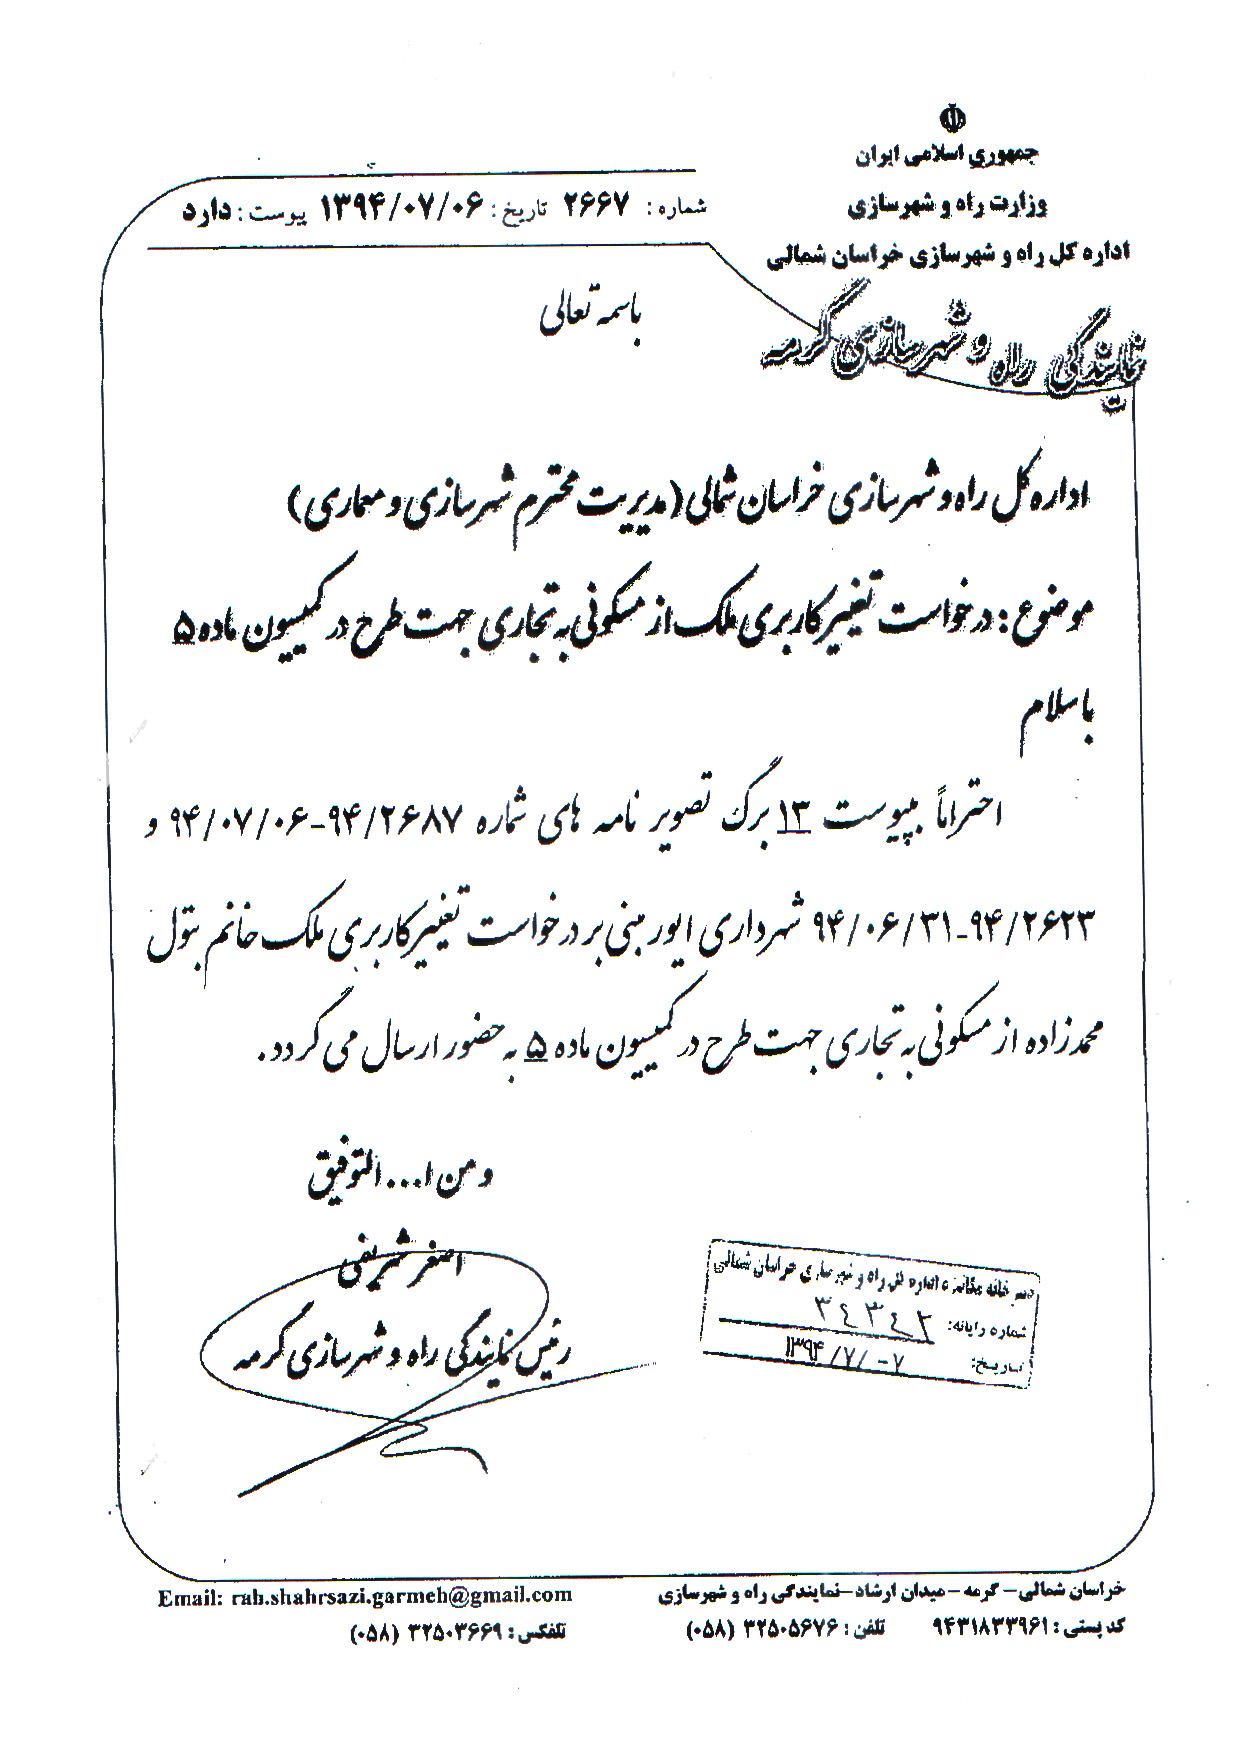 جمهوری اسلامی ایران
وزارت راه و شهرسازی
اداره کل راه و شهرسازی خراسان شمالی
نمایندگی راه و شهرسازی گرمه
شماره: ۲۶۶۷ تاریخ: ۱۳۹۴/۰۷/۰۶ پیوست: دارد
باسمه تعالی
اداره کل راه و شهرسازی خراسان شمالی (مدیریت محترم شهرسازی و معماری)
موضوع: درخواست تغییر کاربری ملک از مسکونی به تجاری جهت طرح در کمیسیون ماده ۵
با سلام
احتراماً بپیوست ۱۳ برگ تصویر نامه های شماره ۹۴/۲۶۸۷-۹۴/۰۷/۰۶ و
۹۴/۲۶۲۳-۹۴/۰۶/۳۱ شهرداری ایور مبنی بر درخواست تغییر کاربری ملک خانم بتول
محمدزاده از مسکونی به تجاری جهت طرح در کمیسیون ماده ۵ به حضور ارسال می گردد.
و من ا... التوفیق
اصغر شریفی
رئیس نمایندگی راه و شهرسازی گرمه
دبیرخانه مکانیزه اداره کل راه و شهرسازی خراسان شمالی
شماره رایانه: ۳۴۳۴۲
تاریخ: ۱۳۹۴/۷/-۷
خراسان شمالی- گرمه -میدان ارشاد-نمایندگی راه و شهرسازی
کد پستی: ۹۴۳۱۸۳۳۹۶۱ تلفن: ۳۲۵۰۵۶۷۶ (۰۵۸)
Email: rah.shahrsazi.garmeh@gmail.com
تلفکس: ۳۲۵۰۳۶۶۹ (۰۵۸)